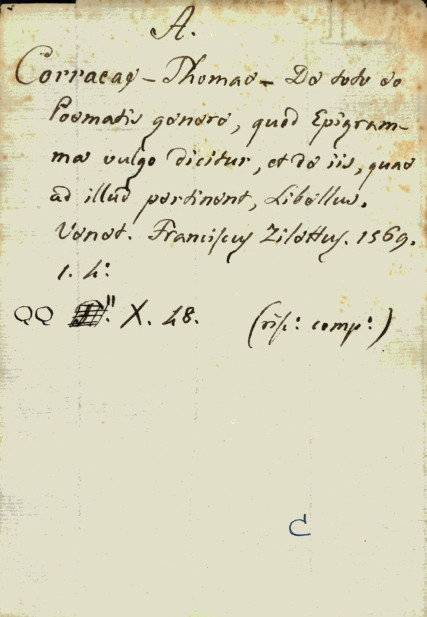 A.
Corracaeӱ - Thomae - De toto eo
Poematis genere, quod Epigram-
ma vulgo dicitur, et de iis, quae
ad illud pertinent, Libellus.
Venet. Franciscus Zilettus. 1569.
1. 4:
QQ X. 48. (ris: comp:)
C